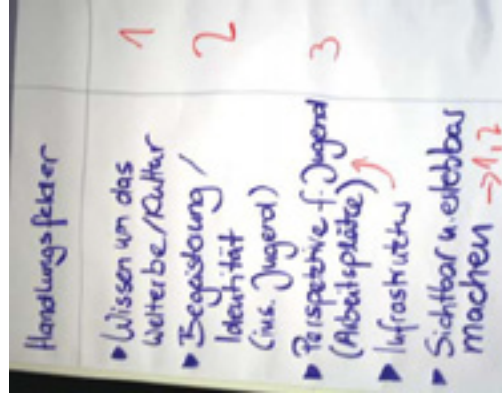 Handlungsfelder
▸ Wissen um das
Welterbe/Kultur 1
▸ Begeisterung /
Identität 2
(ins. Jugend)
▸ Perspektive f. Jugend 3
(Arbeitsplätze)
▸ Infrastruktur
▸ Sichtbar u. erlebbar
machen → 1,2